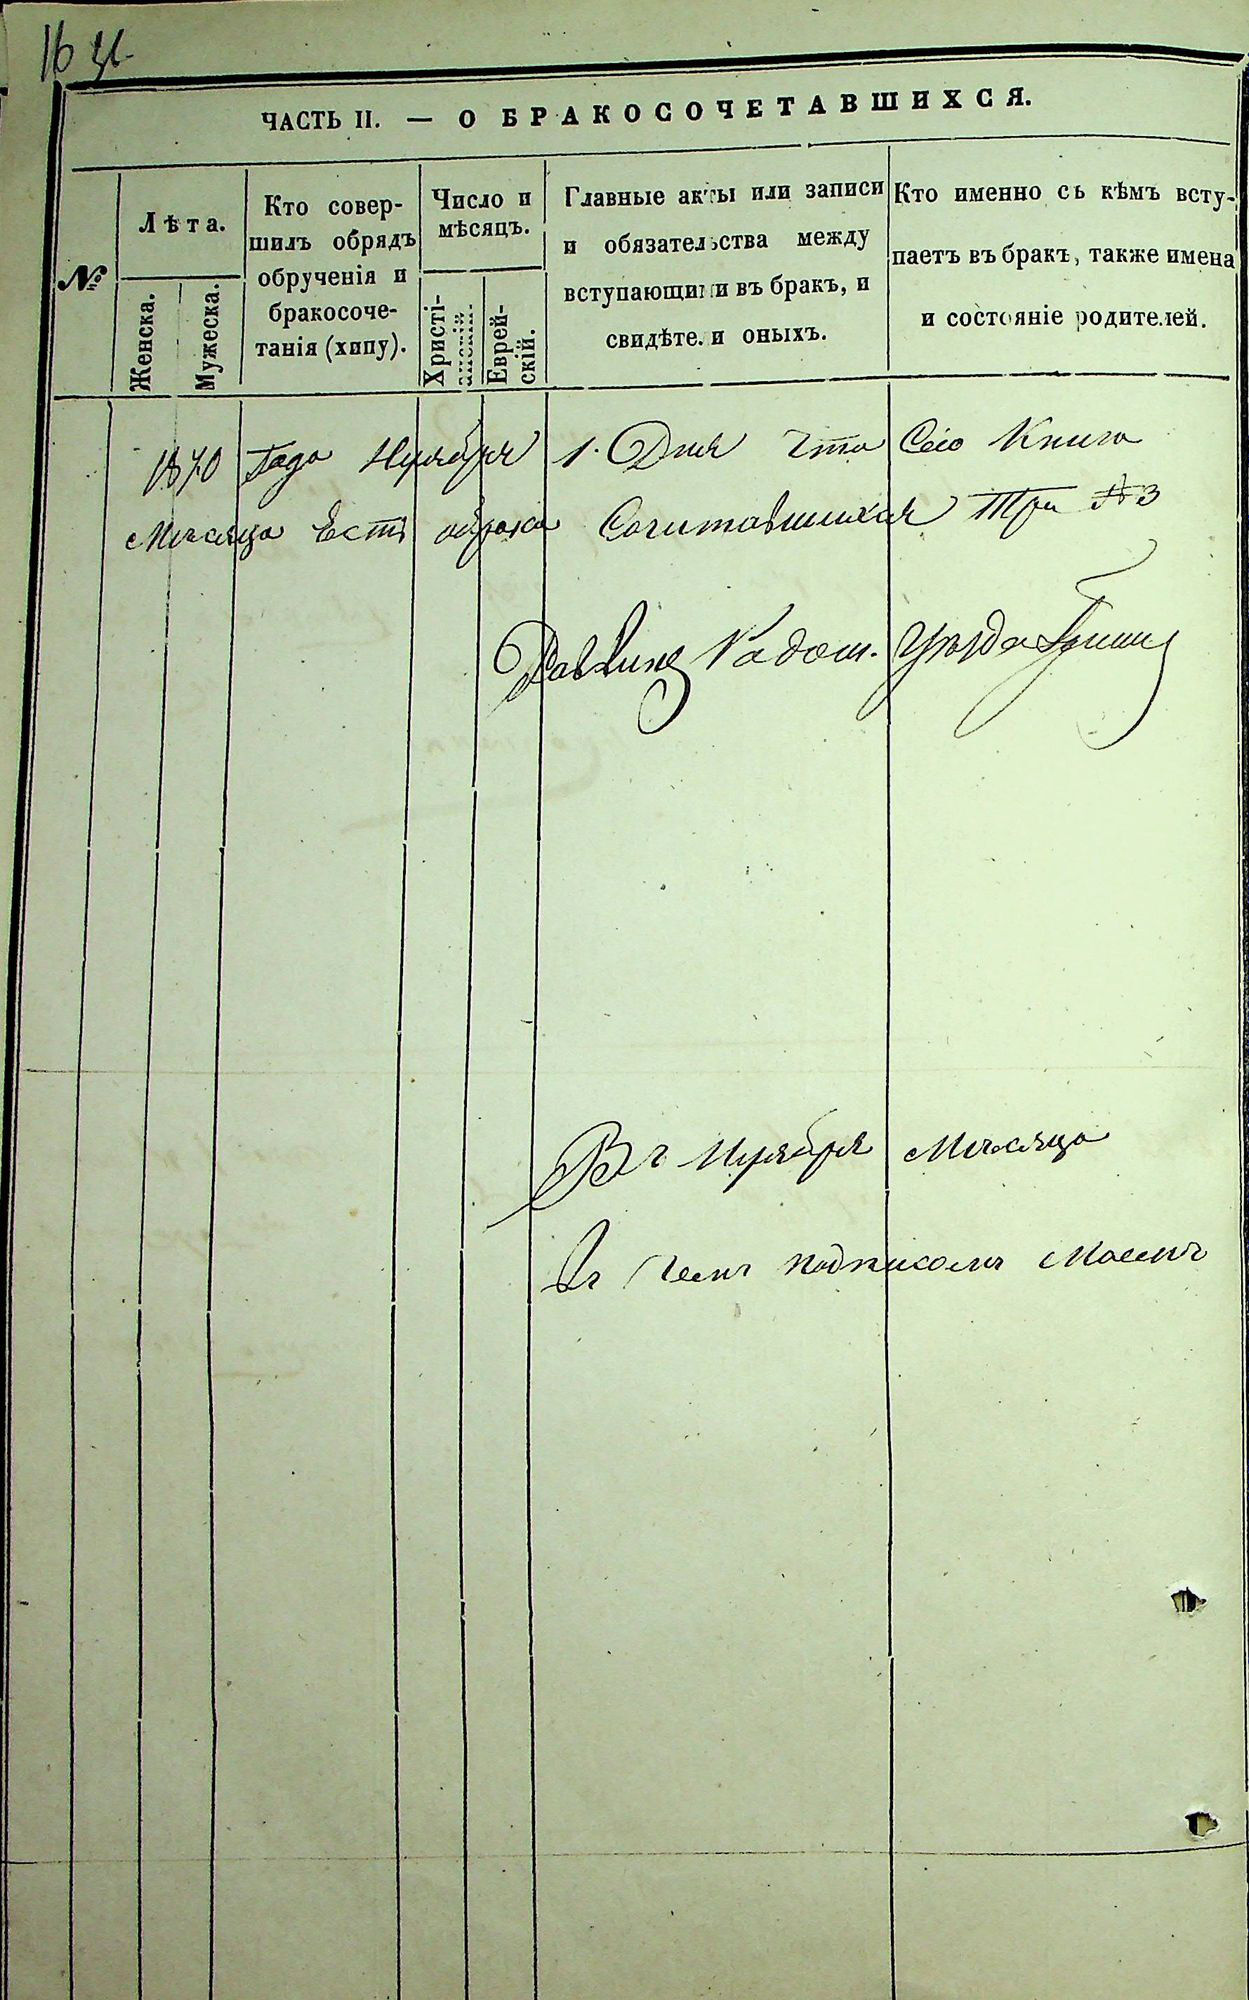 16
ЧАСТЬ II. — О БРАКОСОЧЕТАВШИХСЯ.
№
Лѣта.
Женска.
Мужеска.
Кто совер-
шилъ обрядъ
обрученія и
бракосоче-
танія (хипу).
Число и
мѣсяцъ.
Христі-
анскій.
Еврей-
скій.
Главные акты или записи
и обязательства между
вступающими въ бракъ, и
свидѣтели оныхъ.
Кто именно съ кѣмъ всту-
паетъ въ бракъ, также имена
и состояніе родителей.
1870 Года Нуября 1. Дня что Сею Книга
Мѣсяца Есть брака Сочитавшихся Три № 3
Раввинъ Радом. Уѣзда
Въ Нуября Мѣсяца
Въ чемъ подписомъ Моемъ